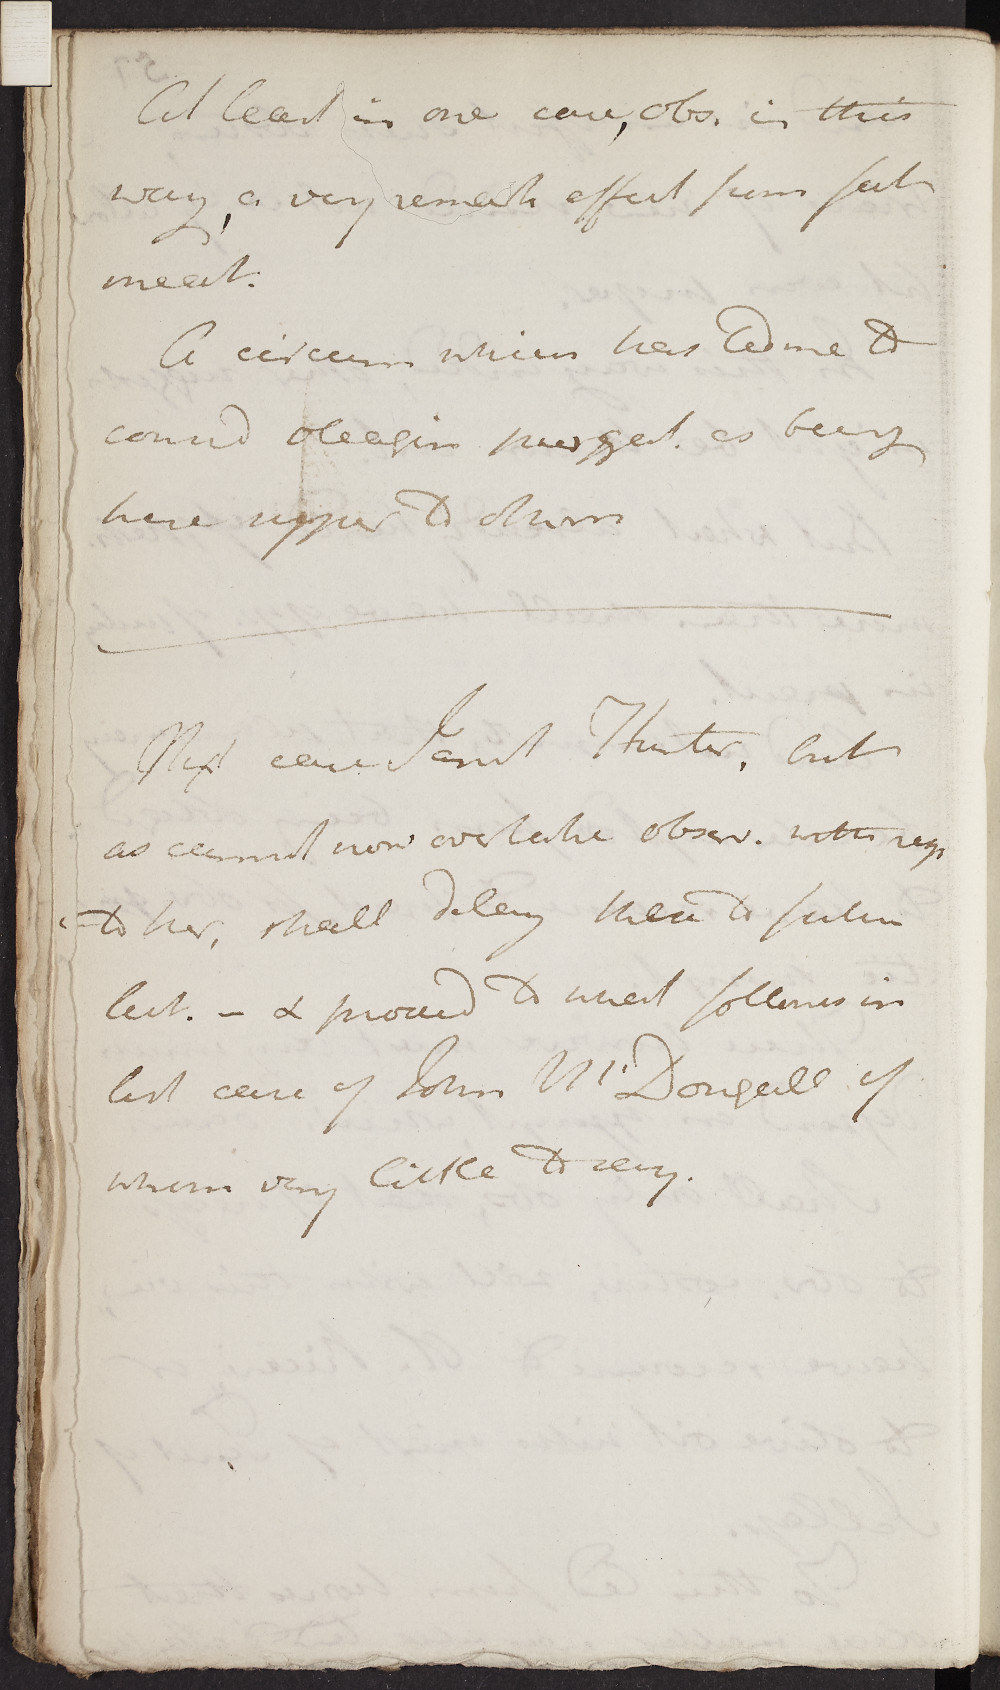 At least in one case, obs. in this
way, a very remark effect from fat
meat.
A circum which has led me to
consid oleagin purgat. as being
here super to others
Next case Janet Hunter, but
as cannot now overtake observ. with reg
to her, shall delay them to future
lect. - & proceed to what follows in
last case of John McDougall of
whom very little to say.